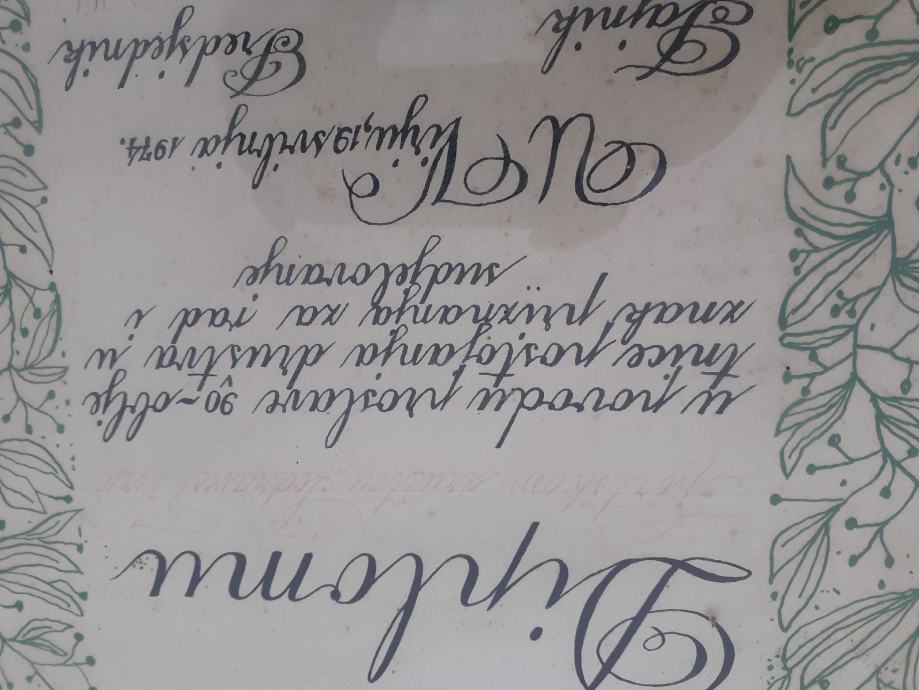 Diplomu
Sportskom društvu
u povodu proslave 90~oblje
tnice postojanja društva u
znak priznanja za rad i
sudjelovanje
U Virju, 19. svibnja 1974.
Tajnik Predsjednik